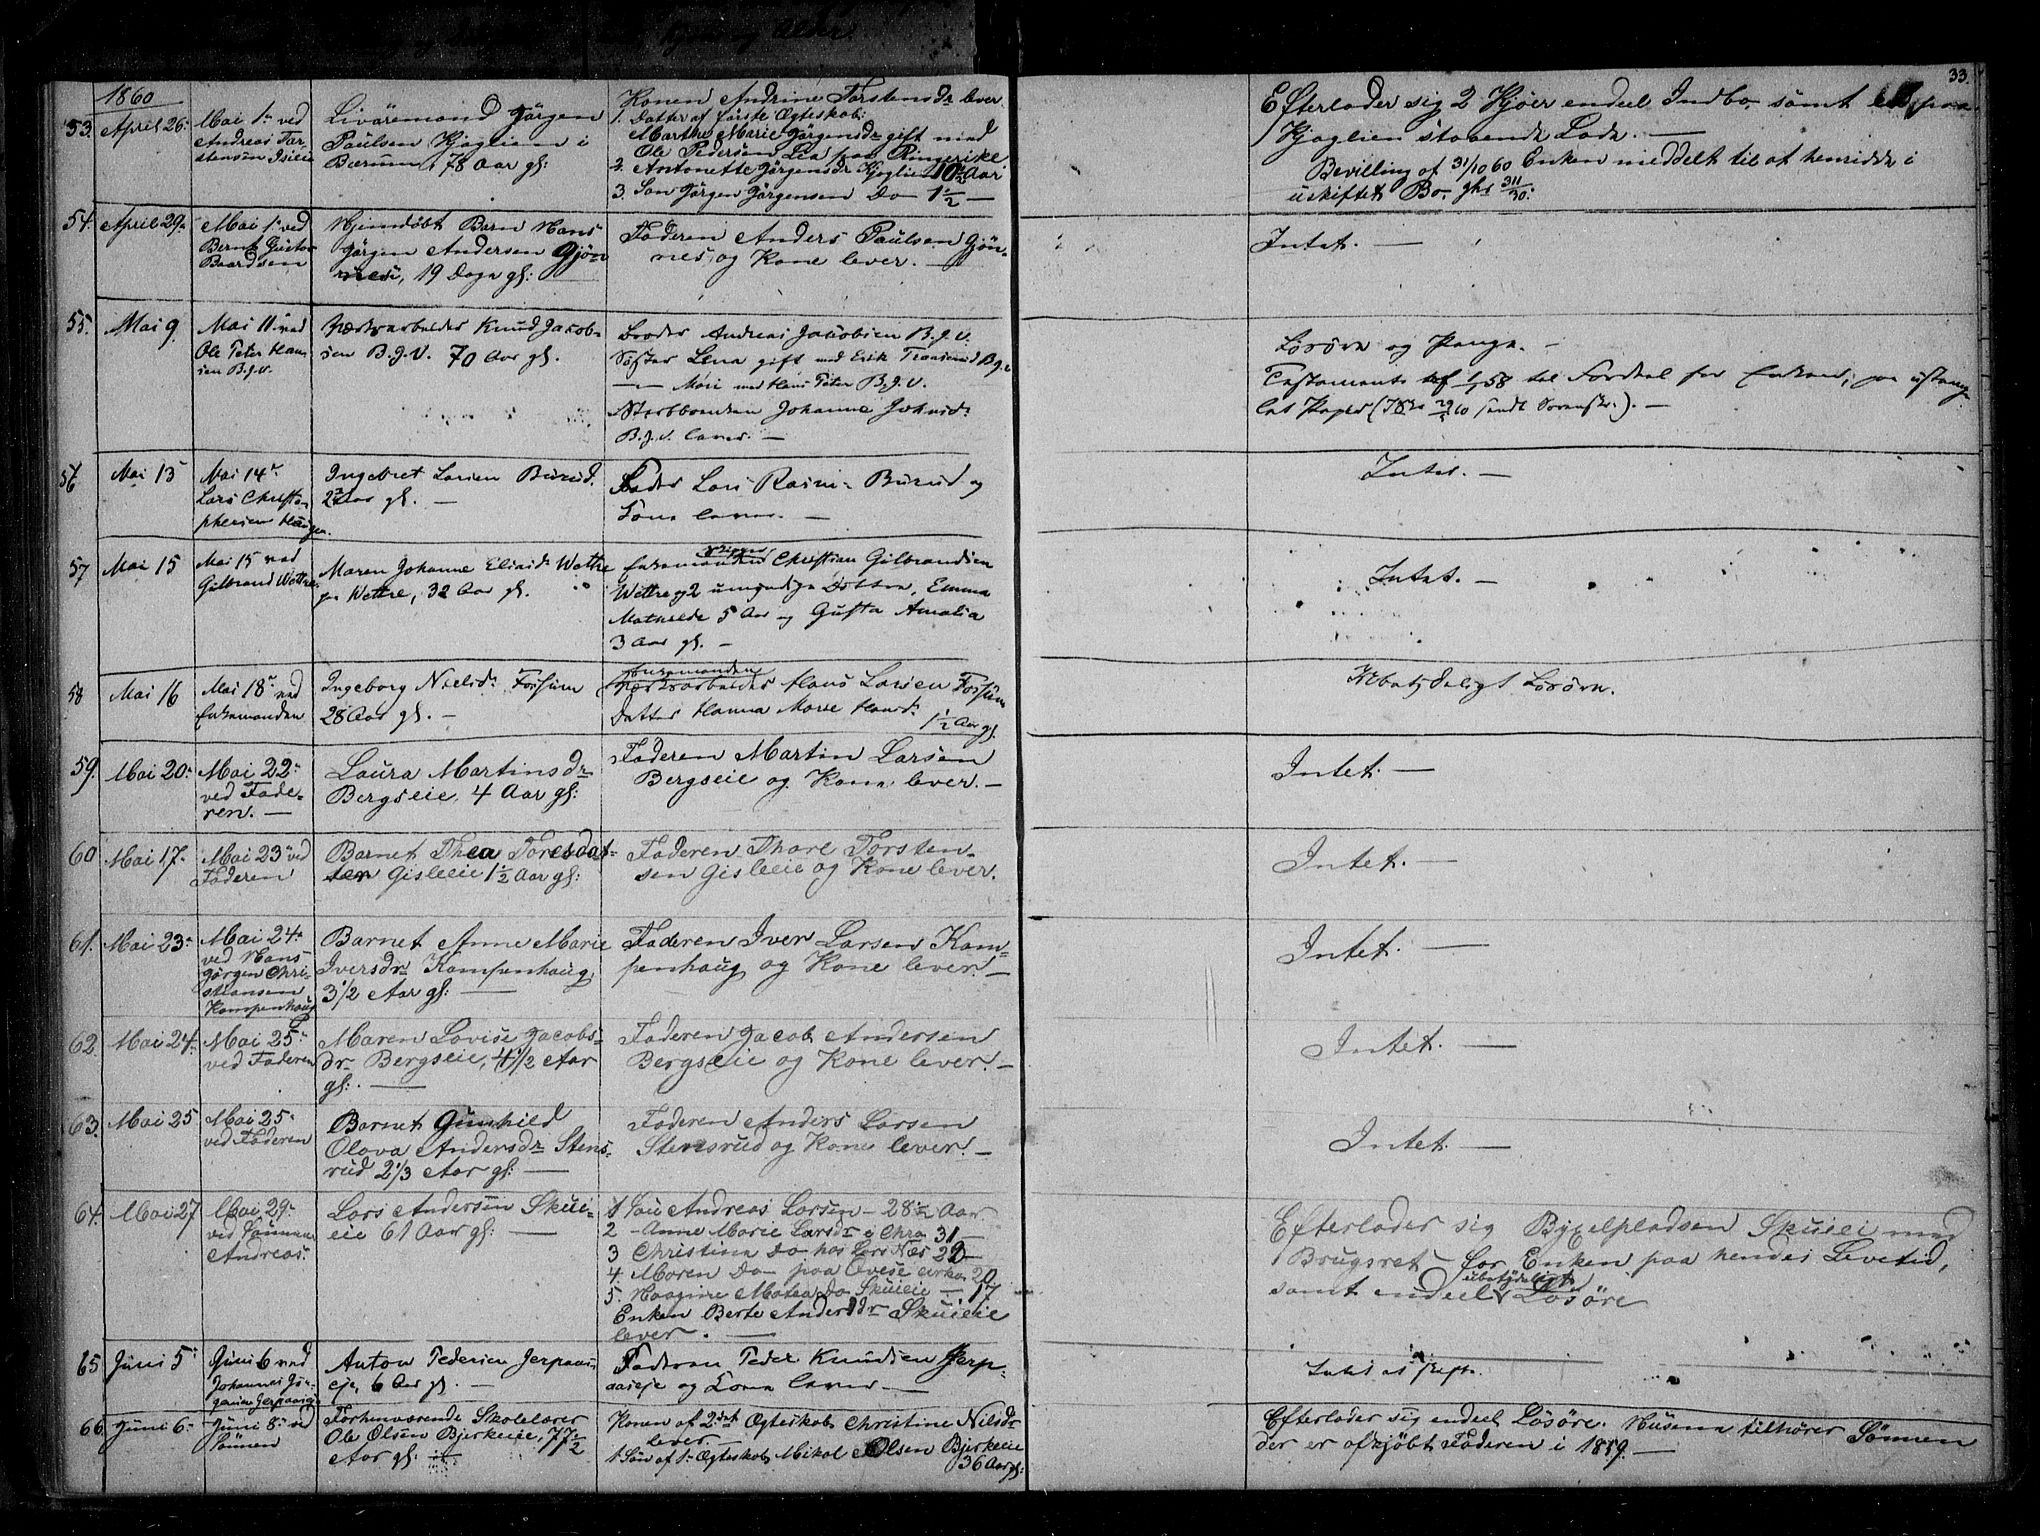 33.
1860
53. April 26. Mai 1. ved Andreas Tarstensen
Livøremand Jörgen
Paulsen Kjaglien i
Bærum, 78 Aar gl:
Konen Andrine Torstensdr lever
1. Datter af förste Ægteskab:
Marthe Marie Jörgensdr gift med
Ole Pedersen Lia paa Ringerike
2. Antonette Jörgensdr Kjaglien 10 1/2 Aar
3. Sön Jörgen Jörgensen Do 1 1/2 —
Efterlader sig 2 Kjøer endeel Indbo samt en paa
Kjaglien staaende Lade. —
Bevilling af 31/10 60 Enken meddelt til at hensidde i
uskiftet Bo.
54. April 29. Mai 1. ved
Bernt Gustav
Baardsen
Hjemdöbt Barn Hans
Jörgen Andersen Gjön
nesei, 19 Dage gl:
Faderen Anders Paulsen Gjön-
nes, og Kone lever. —
Intet. —
55. Mai 9. Mai 11 ved
Ole Peter Han-
sen B.g.v.
Værksarbeider Knud Jacob-
sen B.g.V. 70 Aar gl.
Broder Andreas Jacobsen B.g.v.
Søster Lena gift med Erik B.g.v
—"— Mari med Hans Peter B.g.v.
Johanne
B.g.v. lever. —
Løsøre og Penge. —
Testamente af 58 til Fordeel for Enken, paa
lat Papir
56 Mai 13 Mai 14
Lars Christo-
phersen Haugen.
Ingebret Larsen Burud.
2 Aar gl. —
Fader Lars Burud og
Kone lever. —
Intet. —
57 Mai 15 Mai 15 ved
Gilbrand Wøttre
Maren Johanne Eliasd. Wøttre
paa Wøttre, 32 Aar gl.
Enkemanden Christian Gilbrandsen
Wøttre og 2 umyndige Døttre, Emma
Mathilde 5 Aar og Gusta Amalia
3 Aar gl. —
Intet. —
58 Mai 16 Mai 18 ved
Enkemanden
Ingeborg Nielsd. Fossum
28 Aar gl. —
Enkemanden
Værksarbeider Hans Larsen Fossum
Datter Hanna Marie Hansd. 1 1/2 Aar gl
Ubetydeligt Løsøre.
59. Mai 20. Mai 22.
ved Fade-
ren. —
Laura Martinsdr
Bergseie, 4 Aar gl:
Faderen Martin Larsen
Bergseie og Kone lever. —
Intet. —
60 Mai 17. Mai 23 ved
Faderen
Barnet Thea Toresdat-
ter Gisleeie 1 1/2 Aar gl:
Faderen Thore Torsten-
sen Gisleeie og Kone lever.
Intet. —
61. Mai 23. Mai 24.
ved Hans
Jörgen Chri-
stiansen
Kampenhaug
Barnet Anne Marie
Iversdr Kampenhaug
3 1/2 Aar gl: —
Faderen Iver Larsen Kam-
penhaug og Kone lever. —
Intet. —
62. Mai 24. Mai 25.
ved Faderen
Maren Lovise Jacobs-
dr Bergseie, 4 1/2 Aar
gl: —
Faderen Jacob Andersen
Bergseie og Kone lever. —
Intet. —
63. Mai 25 Mai 25.
ved Faderen
Barnet Gunhild
Olava Andersdr Stens-
rud 2 1/3 Aar gl: —
Faderen Anders Larsen
Stensrud og Kone lever. —
Intet. —
64. Mai 27 Mai 29.
ved Sönnen
Andreas.
Lars Andersen Skui-
eie 61 Aar gl: —
1 Sön Andreas Larsen — 28 1/2 Aar
2 — Anne Marie Larsdr i Chra 31 —
3 Christine Do hos Lars Næs 22 —
4. Maren Do paa Ovese cirka 20
5. Haagine Matea Do Skuieie — 17
Enken Berte Andersdr Skuieie
lever. —
Efterlader sig Bÿxelpladsen Skuiei med
Brugsret for Enken paa hendes Levetid,
samt endeel ubetydeligt Løsøre
65 Juni 5 Juni 6 ved
Johannes Jör-
gensen Jerpaaseje
Anton Pedersen Jerpaas-
eje, 6 Aar gl. —
Faderen Peder Knudsen Jerp-
aaseje og Kone lever —
Intet at skifte.
66. Juni 6. Juni 8 ved
Sönnen
Forhenværende Skolelærer
Ole Olsen Bjerkeeie, 77 1/2
Aar gl:
Konen af 2det Ægteskab Christine Nilsdr
lever —
1 Sön af 1. Ægteskab Mikal Olsen Bjerkeeie
36 Aar gl:
Efterlader sig endeel Løsøre. Husene tilhører Sönnen
der er afkjøbt Faderen i 1859. —